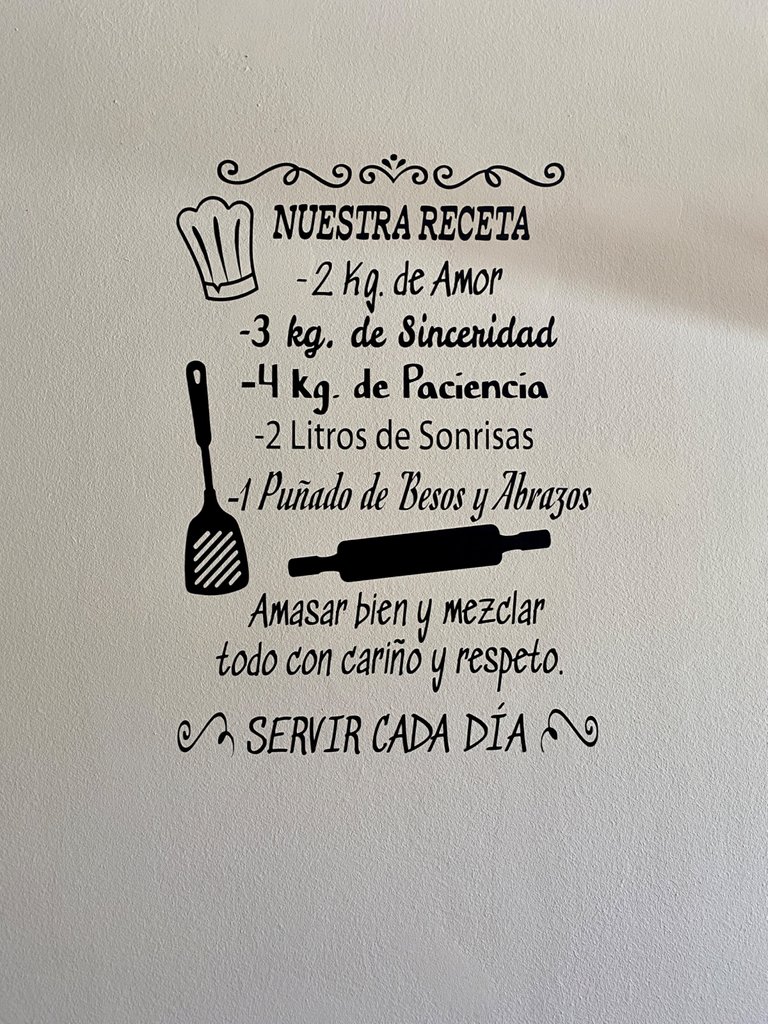 NUESTRA RECETA
-2 Kg. de Amor
-3 kg. de Sinceridad
-4 kg. de Paciencia
-2 Litros de Sonrisas
-1 Puñado de Besos y Abrazos
Amasar bien y mezclar
todo con cariño y respeto.
SERVIR CADA DÍA